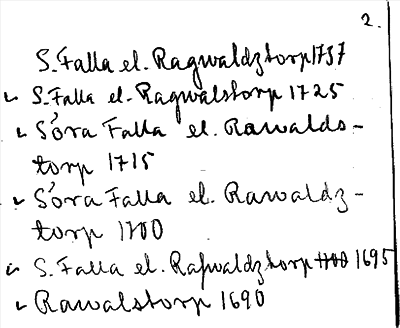 2.
S. Falla el. Ragwaldztorp 1737
S. Falla el. Ragwalstorp 1725
Sóra Falla el. Rawalds-
torp 1715
Sóra Falla el. Rawaldz-
torp 1700
S. Falla el. Rafwaldztorp 1700 1695
Rawalstorp 1690